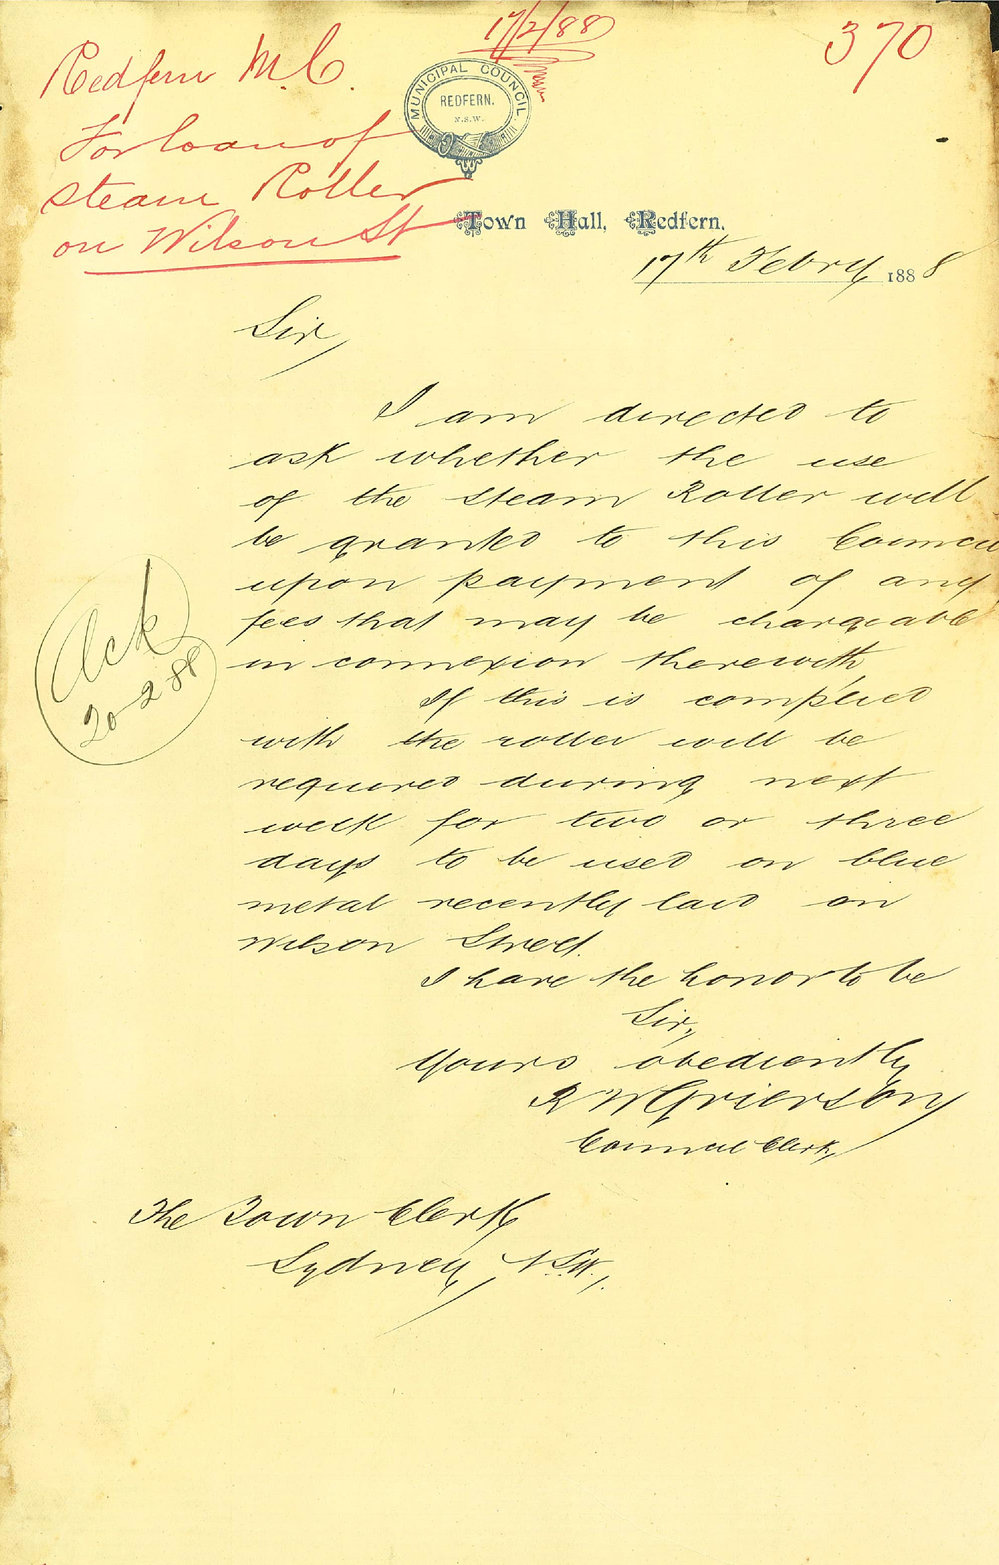 17/2/88
370
Redfern M.C.
For loan of
steam Roller
on Wilson St
MUNICIPAL COUNCIL.
REDFERN.
N.S.W.
Town Hall, Redfern.
17th Febry 1888
Sir,
I am directed to
ask whether the use
of the steam Roller will
be granted to this Council
upon payment of any
fees that may be chargeable
in connexion therewith,
If this is complied
with the roller will be
required during next
week for two or three
days to be used on blue
metal recently laid on
Wilson Street.
I have the honor to be
Sir,
Yours obediently
R W Grierson
Council Clerk,
Ack
20-2-88
The Town Clerk
Sydney, N.S.W.